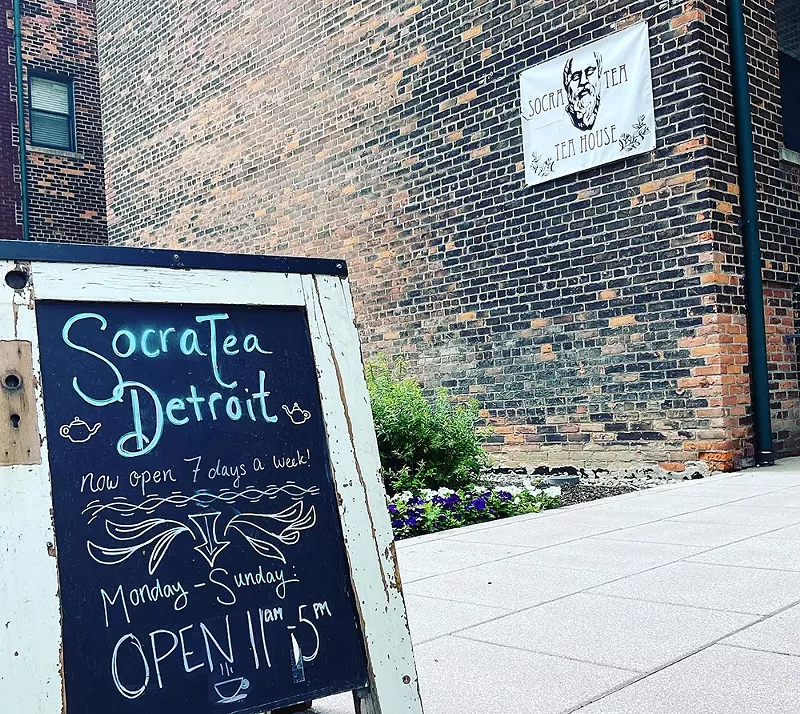 SOCRA TEA
TEA HOUSE
SocraTea
Detroit
now open 7 days a week!
Monday - Sunday:
OPEN 11am - 5PM